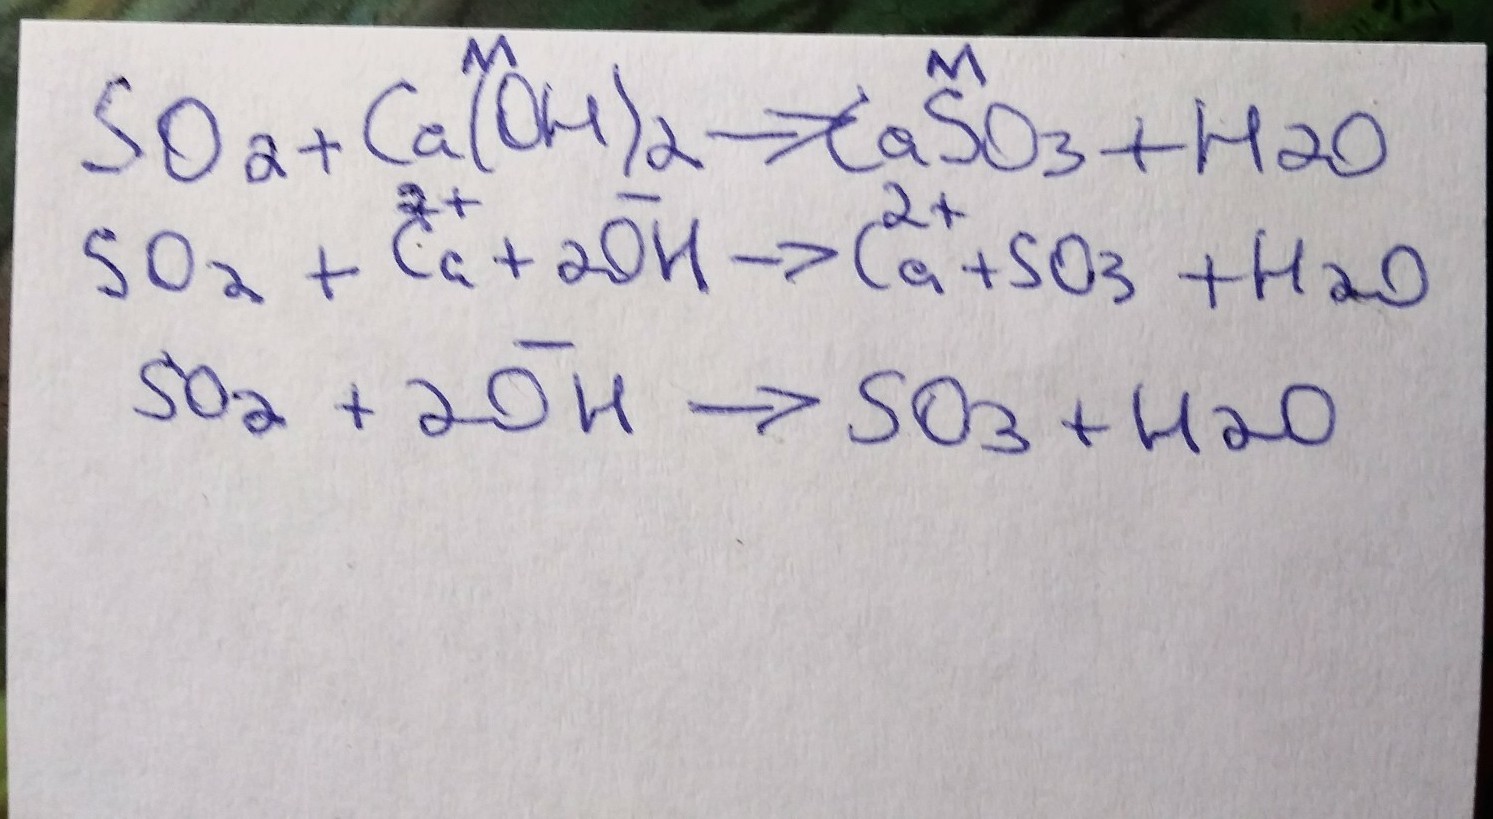 M M
SO2 + Ca(OH)2 → CaSO3 + H2O
2+ – 2+
SO2 + Ca + 2OH → Ca + SO3 + H2O
–
SO2 + 2OH → SO3 + H2O